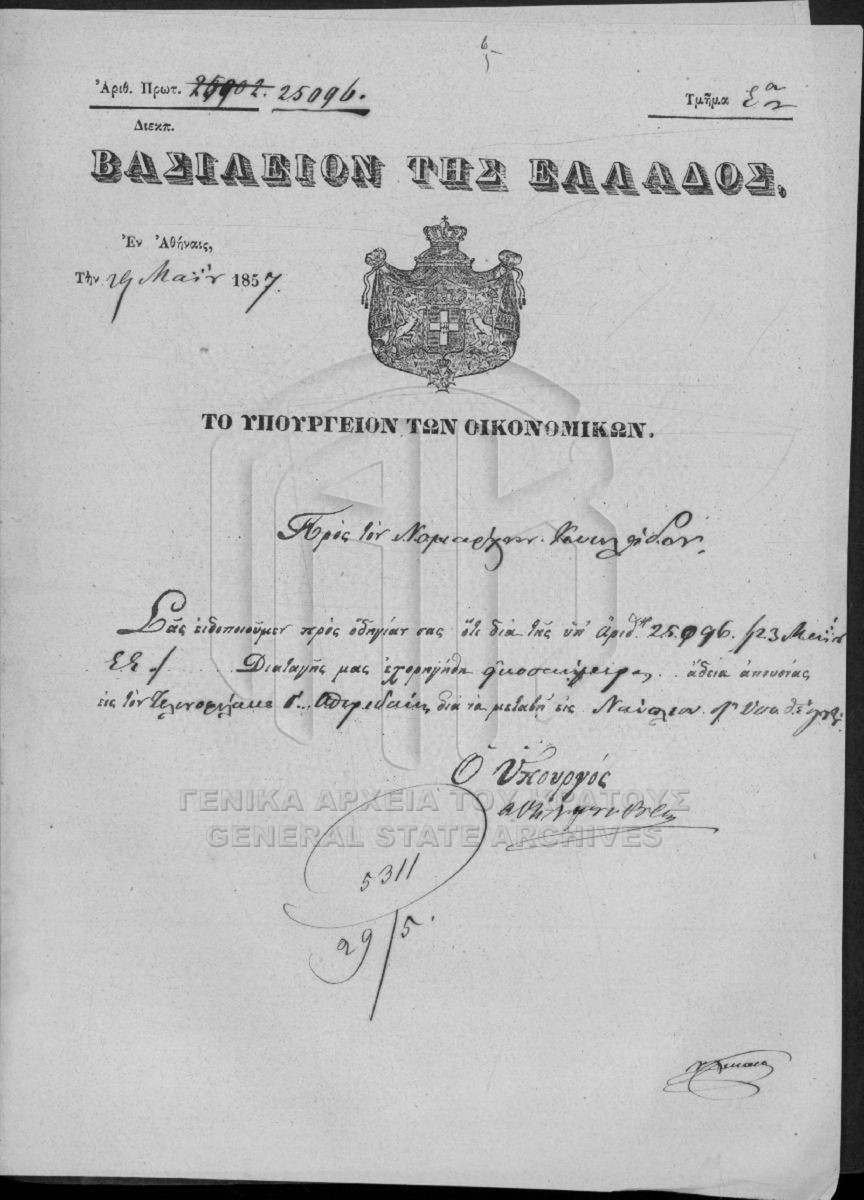 Ἀριθ. Πρωτ. 25902. 25096.
Τμῆμα
Διεκπ.
ΒΑΣΙΛΕΙΟΝ ΤΗΣ ΕΛΛΑΔΟΣ,
Ἐν Ἀθήναις,
Τὴν 29 Μαΐου 1857.
ΤΟ ΥΠΟΥΡΓΕΙΟΝ ΤΩΝ ΟΙΚΟΝΟΜΙΚΩΝ.
Πρὸς τὸν Νομάρχην
Σᾶς εἰδοποιοῦμεν πρὸς ὁδηγίαν σας ὅτι διὰ τῆς ὑπ' ἀριθ. 25096. /23 Μαΐου
Διαταγῆς μας ἐχορηγήθη εἰκοσαήμερος ἄδεια ἀπουσίας
εἰς τὸν διὰ νὰ μεταβῇ εἰς Ναύπλιον
Ὁ Ὑπουργός
ΓΕΝΙΚΑ ΑΡΧΕΙΑ ΤΟΥ ΚΡΑΤΟΥΣ
GENERAL STATE ARCHIVES
5311
29/5.